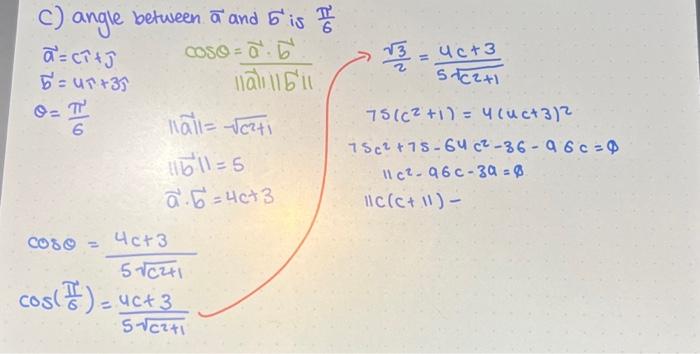 c) angle between a⃗ and b⃗ is π/6
a⃗ = cî + ĵ
b⃗ = 4î + 3ĵ
θ = π/6
cosθ = a⃗ · b⃗ / ||a⃗|| ||b⃗||
||a⃗|| = √c²+1
||b⃗|| = 5
a⃗ · b⃗ = 4c+3
cosθ = 4c+3 / 5√c²+1
cos(π/6) = 4c+3 / 5√c²+1
√3/2 = 4c+3 / 5√c²+1
75(c²+1) = 4(4c+3)²
75c²+75-64c²-36-96c=0
11c²-96c-39=0
11c(c+11)-